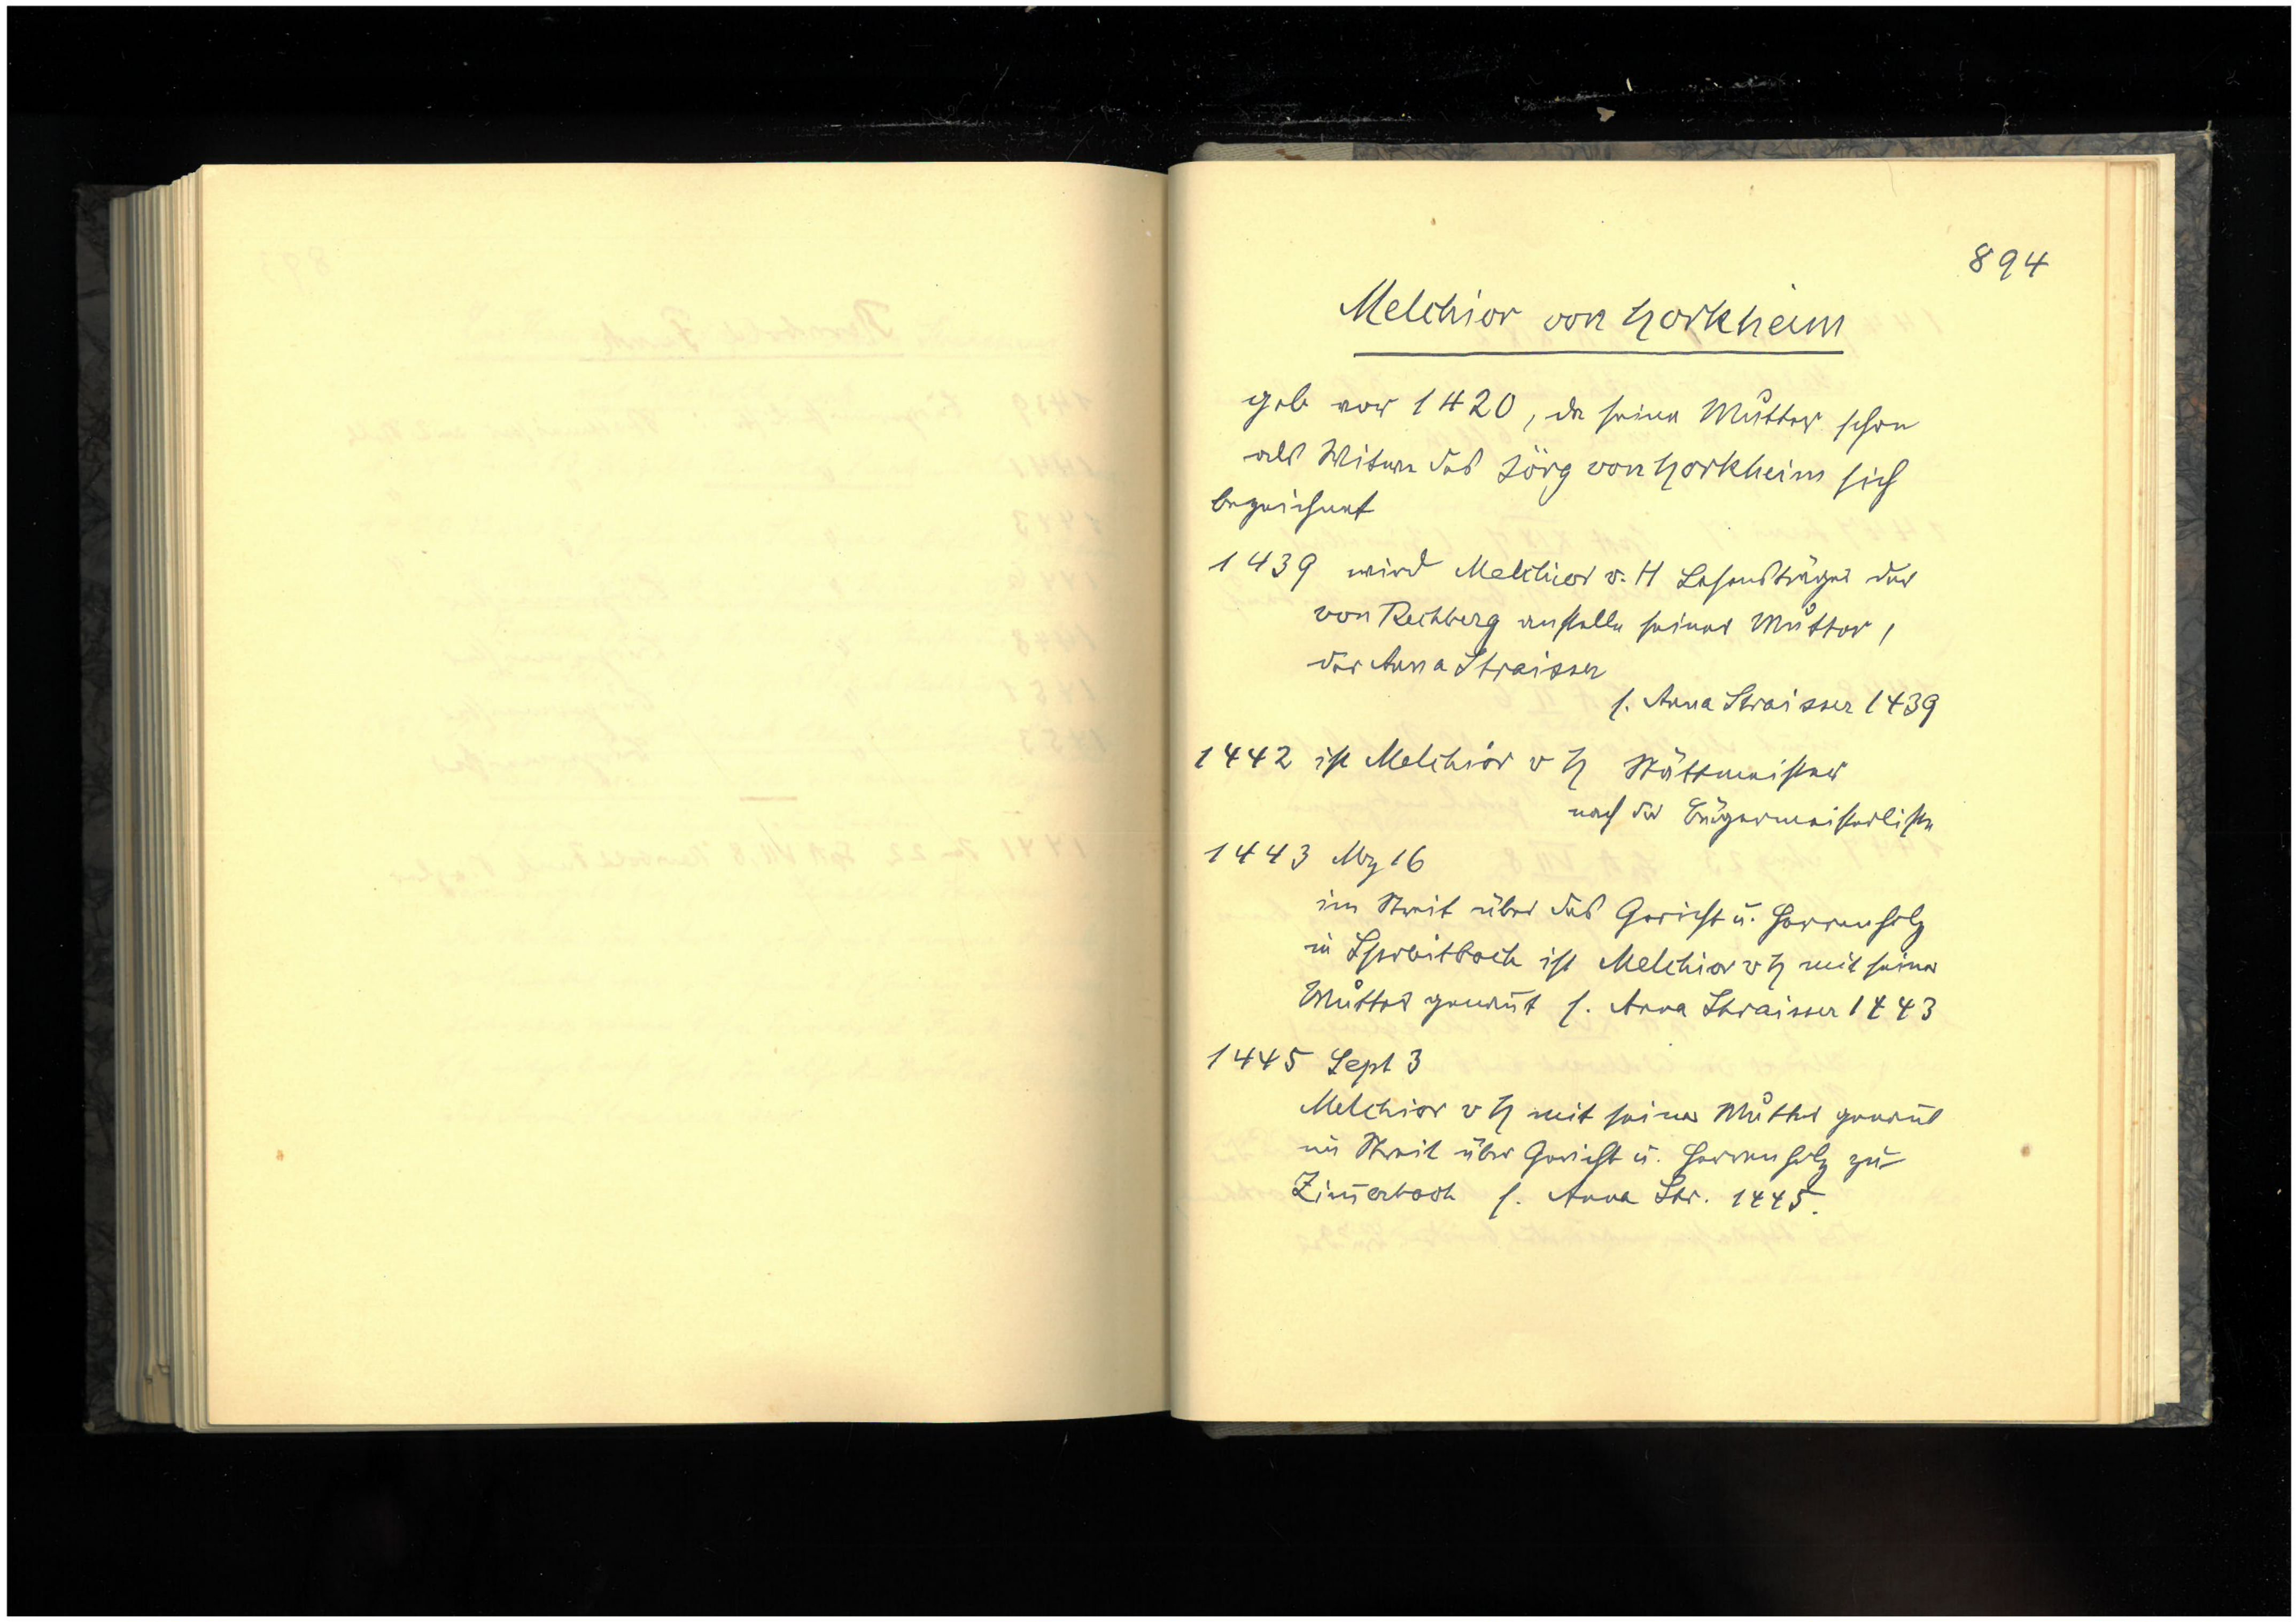 894
Melchior von Horkheim
geb vor 1420, da seine Mutter schon
als Witwe des Jörg von Horkheim sich
bezeichnet
1439 wird Melchior v. H Lehensträger der
von Rechberg anstelle seiner Mutter,
der Anna Straisser
s. Anna Straisser 1439
1442 ist Melchior v H Stättmeister
nach der Bürgermeisterliste
1443 Mz 16
im Streit über das Gericht u. Herrenholz
in Spraitbach ist Melchior v H mit seiner
Mutter genañt s. Anna Straisser 1443
1445 Sept 3
Melchior v H mit seiner Mutter genañt
im Streit über Gericht u. Herrenholz zu
Zim̄erbach s. Anna Str. 1445.